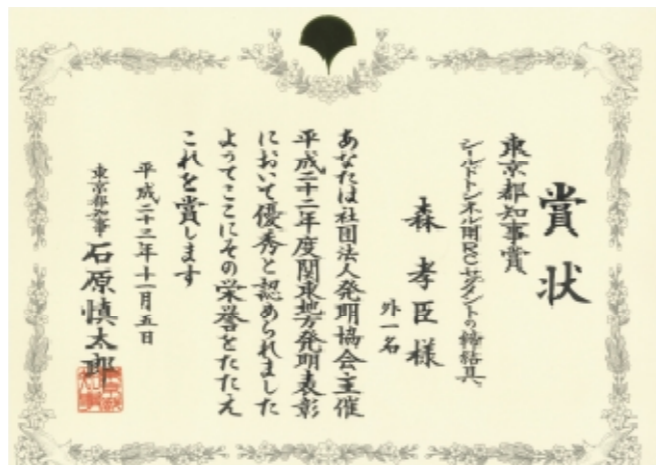 賞状
東京都知事賞
シールドトンネル用RCセグメントの締結具
森孝臣様
外一名
あなたは社団法人発明協会主催
平成二十二年度関東地方発明表彰
において優秀と認められました
よってここにその栄誉をたたえ
これを賞します
平成二十二年十一月五日
東京都知事 石原慎太郎